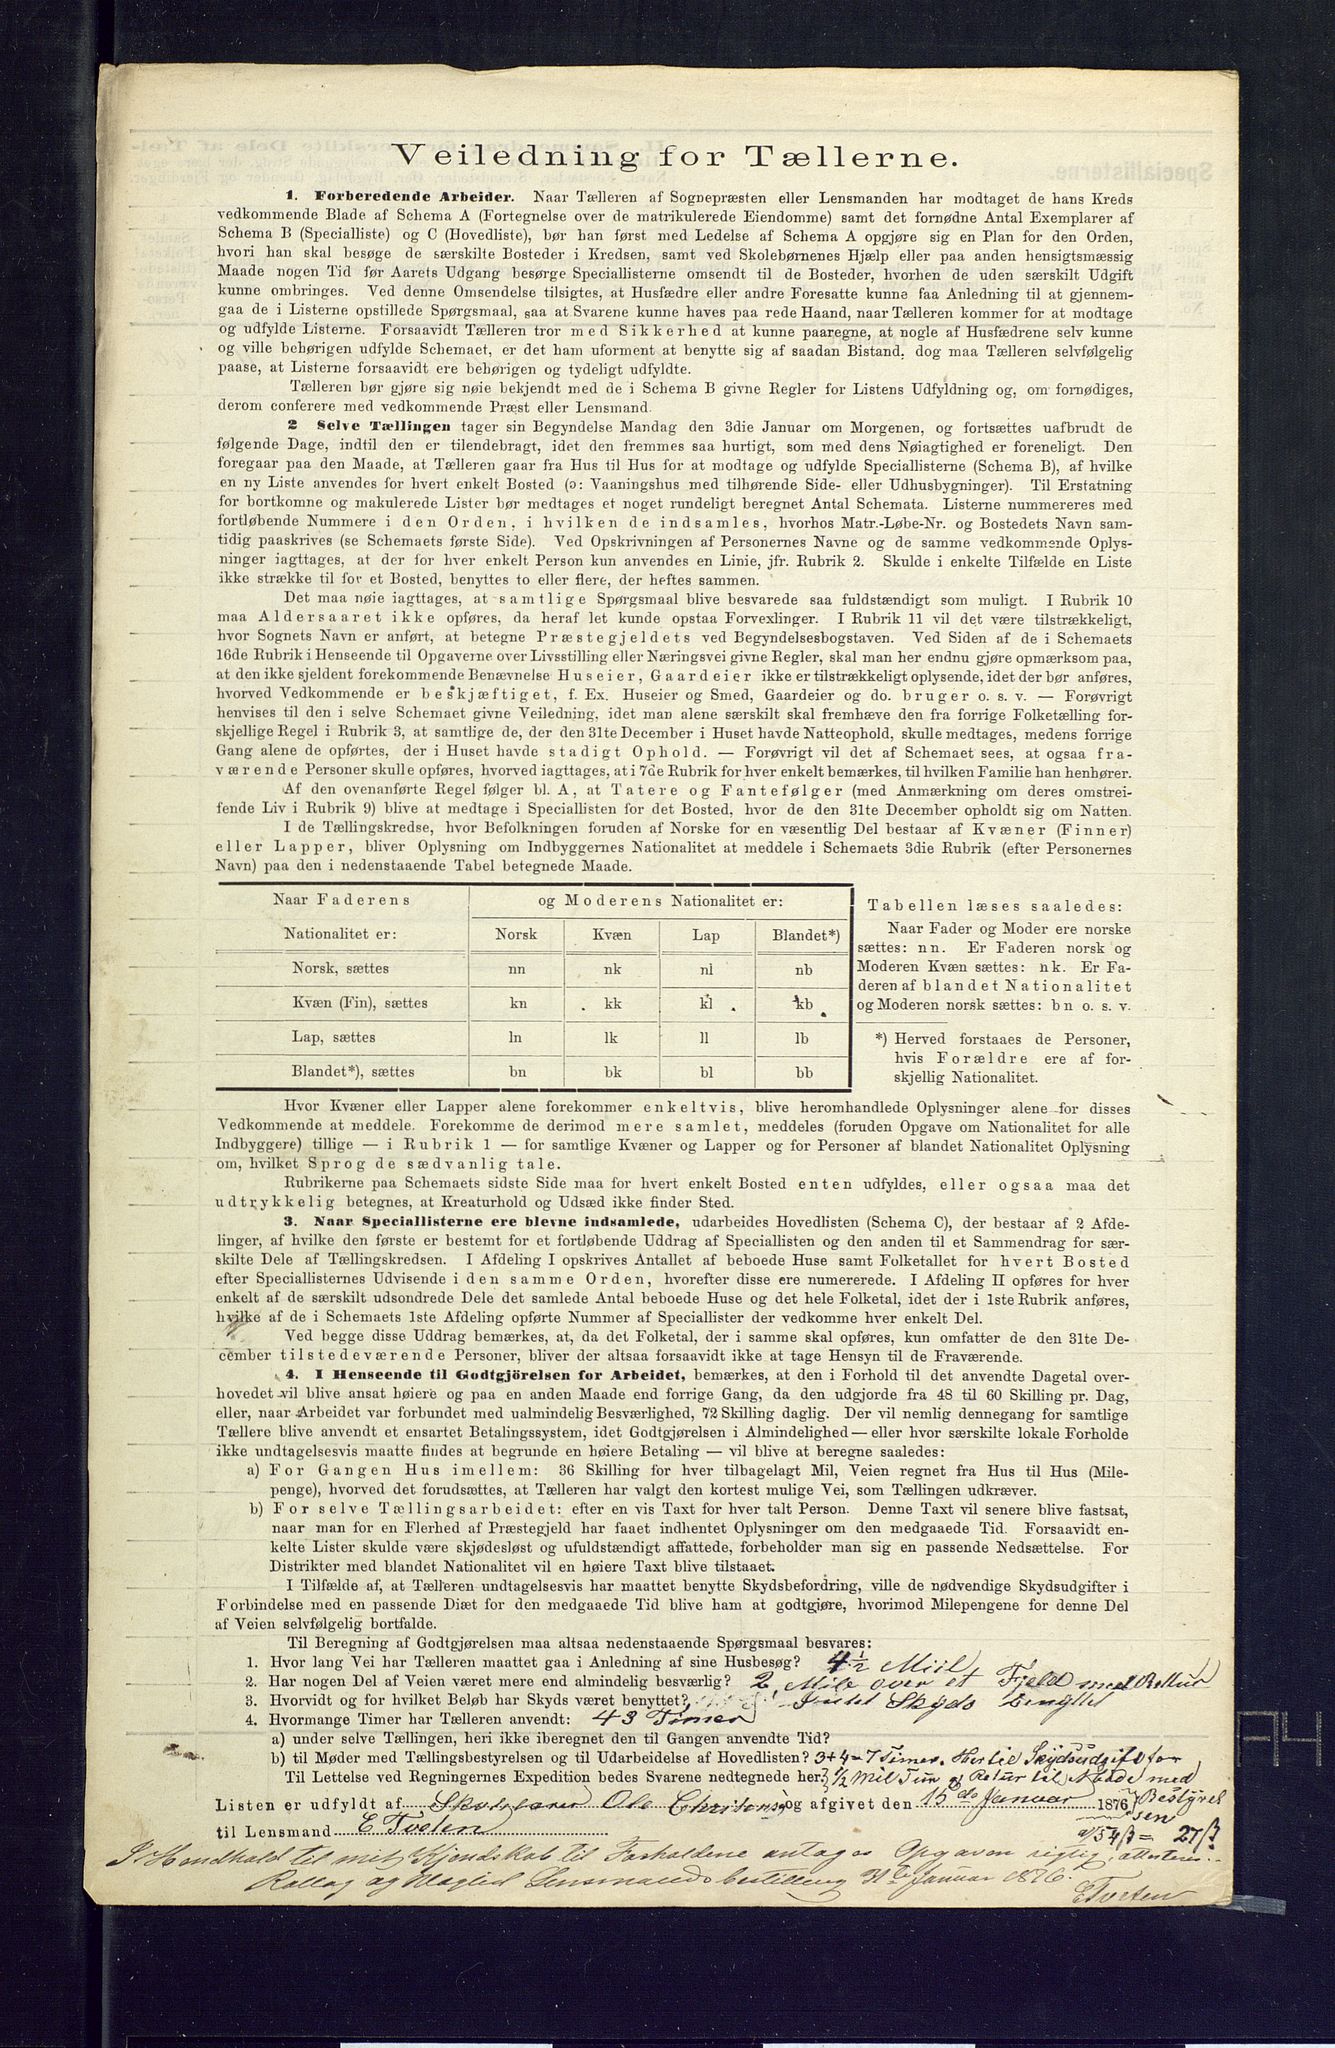 Veiledning for Tællerne.
1. Forberedende Arbeider. Naar Tælleren af Sognepræsten eller Lensmanden har modtaget de hans Kreds
vedkommende Blade af Schema A (Fortegnelse over de matrikulerede Eiendomme) samt det fornødne Antal Exemplarer af
Schema B (Specialliste) og C (Hovedliste), bør han først med Ledelse af Schema A opgjøre sig en Plan for den Orden,
hvori han skal besøge de særskilte Bosteder i Kredsen, samt ved Skolebørnenes Hjælp eller paa anden hensigtsmæssig
Maade nogen Tid før Aarets Udgang besørge Speciallisterne omsendt til de Bosteder, hvorhen de uden særskilt Udgift
kunne ombringes. Ved denne Omsendelse tilsigtes, at Husfædre eller andre Foresatte kunne faa Anledning til at gjennem-
gaa de i Listerne opstillede Spørgsmaal, saa at Svarene kunne haves paa rede Haand, naar Tælleren kommer for at modtage
og udfylde Listerne. Forsaavidt Tælleren tror med Sikkerhed at kunne paaregne, at nogle af Husfædrene selv kunne
og ville behørigen udfylde Schemaet, er det ham uforment at benytte sig af saadan Bistand, dog maa Tælleren selvfølgelig
paase, at Listerne forsaavidt ere behørigen og tydeligt udfyldte.
Tælleren bør gjøre sig nøie bekjendt med de i Schema B givne Regler for Listens Udfyldning og, om fornødiges,
derom conferere med vedkommende Præst eller Lensmand.
2 Selve Tællingen tager sin Begyndelse Mandag den 3die Januar om Morgenen, og fortsættes uafbrudt de
følgende Dage, indtil den er tilendebragt, idet den fremmes saa hurtigt, som med dens Nøiagtighed er foreneligt. Den
foregaar paa den Maade, at Tælleren gaar fra Hus til Hus for at modtage og udfylde Speciallisterne (Schema B), af hvilke
en ny Liste anvendes for hvert enkelt Bosted (ɔ: Vaaningshus med tilhørende Side- eller Udhusbygninger). Til Erstatning
for bortkomne og makulerede Lister bør medtages et noget rundeligt beregnet Antal Schemata. Listerne nummereres med
fortløbende Nummere i den Orden, i hvilken de indsamles, hvorhos Matr.-Løbe-Nr. og Bostedets Navn sam-
tidig paaskrives (se Schemaets første Side). Ved Opskrivningen af Personernes Navne og de samme vedkommende Oplys-
ninger iagttages, at der for hver enkelt Person kun anvendes en Linie, jfr. Rubrik 2. Skulde i enkelte Tilfælde en Liste
ikke strække til for et Bosted, benyttes to eller flere, der heftes sammen.
Det maa nøie iagttages, at samtlige Spørgsmaal blive besvarede saa fuldstændigt som muligt. I Rubrik 10
maa Aldersaaret ikke opføres, da heraf let kunde opstaa Forvexlinger. I Rubrik 11 vil det være tilstrækkeligt,
hvor Sognets Navn er anført, at betegne Præstegjeldets ved Begyndelsesbogstaven. Ved Siden af de i Schemaets
16de Rubrik i Henseende til Opgaverne over Livsstilling eller Næringsvei givne Regler, skal man her endnu gjøre opmærksom paa,
at den ikke sjeldent forekommende Benævnelse Huseier, Gaardeier ikke er tilstrækkeligt oplysende, idet der bør anføres,
hvorved Vedkommende er beskjæftiget, f. Ex. Huseier og Smed, Gaardeier og do. bruger o. s. v. — Forøvrigt
henvises til den i selve Schemaet givne Veiledning, idet man alene særskilt skal fremhæve den fra forrige Folketælling for-
skjellige Regel i Rubrik 3, at samtlige de, der den 31te December i Huset havde Natteophold, skulle medtages, medens forrige
Gang alene de opførtes, der i Huset havde stadigt Ophold. — Forøvrigt vil det af Schemaet sees, at ogsaa fra-
værende Personer skulle opføres, hvorved iagttages, at i 7de Rubrik for hver enkelt bemærkes, til hvilken Familie han henhører.
Af den ovenanførte Regel følger bl. A, at Tatere og Fantefølger (med Anmærkning om deres omstrei-
fende Liv i Rubrik 9) blive at medtage i Speciallisten for det Bosted, hvor de den 31te December opholdt sig om Natten.
I de Tællingskredse, hvor Befolkningen foruden af Norske for en væsentlig Del bestaar af Kvæner (Finner)
eller Lapper, bliver Oplysning om Indbyggernes Nationalitet at meddele i Schemaets 3die Rubrik (efter Personernes
Navn) paa den i nedenstaaende Tabel betegnede Maade.
Naar Faderens og Moderens Nationalitet er:
Nationalitet er: Norsk Kvæn Lap Blandet*)
Norsk, sættes nn nk nl nb
Kvæn (Fin), sættes kn kk kl kb
Lap, sættes ln lk ll lb
Blandet*), sættes bn bk bl bb
Tabellen læses saaledes:
Naar Fader og Moder ere norske
sættes: nn. Er Faderen norsk og
Moderen Kvæn sættes: nk. Er Fa-
deren af blandet Nationalitet
og Moderen norsk sættes: bn o. s. v.
*) Herved forstaaes de Personer,
hvis Forældre ere af for-
skjellig Nationalitet.
Hvor Kvæner eller Lapper alene forekommer enkeltvis, blive heromhandlede Oplysninger alene for disses
Vedkommende at meddele. Forekomme de derimod mere samlet, meddeles (foruden Opgave om Nationalitet for alle
Indbyggere) tillige — i Rubrik 1 — for samtlige Kvæner og Lapper og for Personer af blandet Nationalitet Oplysning
om, hvilket Sprog de sædvanlig tale.
Rubrikerne paa Schemaets sidste Side maa for hvert enkelt Bosted enten udfyldes, eller ogsaa maa det
udtrykkelig betegnes, at Kreaturhold og Udsæd ikke finder Sted.
3. Naar Speciallisterne ere blevne indsamlede, udarbeides Hovedlisten (Schema C), der bestaar af 2 Afde-
linger, af hvilke den første er bestemt for et fortløbende Uddrag af Speciallisten og den anden til et Sammendrag for sær-
skilte Dele af Tællingskredsen. I Afdeling I opskrives Antallet af beboede Huse samt Folketallet for hvert Bosted
efter Speciallisternes Udvisende i den samme Orden, hvorefter disse ere numererede. I Afdeling II opføres for hver
enkelt af de særskilt udsondrede Dele det samlede Antal beboede Huse og det hele Folketal, idet der i 1ste Rubrik anføres,
hvilke af de i Schemaets 1ste Afdeling opførte Nummer af Speciallister der vedkomme hver enkelt Del.
Ved begge disse Uddrag bemærkes, at, da det Folketal, der i samme skal opføres, kun omfatter de den 31te De-
cember tilstedeværende Personer, bliver der altsaa forsaavidt ikke at tage Hensyn til de Fraværende.
4. I Henseende til Godtgjörelsen for Arbeidet, bemærkes, at den i Forhold til det anvendte Dagetal over-
hovedet vil blive ansat høiere og paa en anden Maade end forrige Gang, da den udgjorde fra 48 til 60 Skilling pr. Dag,
eller, naar Arbeidet var forbundet med ualmindelig Besværlighed, 72 Skilling daglig. Der vil nemlig dennegang for samtlige
Tællere blive anvendt et ensartet Betalingssystem, idet Godtgjørelsen i Almindelighed — eller hvor særskilte lokale Forholde
ikke undtagelsesvis maatte findes at begrunde en høiere Betaling — vil blive at beregne saaledes:
a) For Gangen Hus imellem: 36 Skilling for hver tilbagelagt Mil, Veien regnet fra Hus til Hus (Mile-
penge), hvorved det forudsættes, at Tælleren har valgt den kortest mulige Vei, som Tællingen udkræver.
b) For selve Tællingsarbeidet: efter en vis Taxt for hver talt Person. Denne Taxt vil senere blive fastsat,
naar man for en Flerhed af Præstegjeld har faaet indhentet Oplysninger om den medgaaede Tid. Forsaavidt en-
kelte Lister skulde være skjødesløst og ufuldstændigt affattede, forbeholder man sig en passende Nedsættelse. For
Distrikter med blandet Nationalitet vil en høiere Taxt blive tilstaaet.
I Tilfælde af, at Tælleren undtagelsesvis har maattet benytte Skydsbefordring, ville de nødvendige Skydsudgifter i
Forbindelse med en passende Diæt for den medgaaede Tid blive ham at godtgjøre, hvorimod Milepengene for denne Del
af Veien selvfølgelig bortfalde.
Til Beregning af Godtgjørelsen maa altsaa nedenstaaende Spørgsmaal besvares:
1. Hvor lang Vei har Tælleren maattet gaa i Anledning af sine Husbesøg? 4 1/2 Miil
2. Har nogen Del af Veien været mere end almindelig besværlig? 2 Mile over et Fjeld med Rettur
3. Hvorvidt og for hvilket Beløb har Skyds været benyttet? Intet Skyds Benyttet
4. Hvormange Timer har Tælleren anvendt: 43 Timer
a) under selve Tællingen, heri ikke iberegnet den til Gangen anvendte Tid?
b) til Møder med Tællingsbestyrelsen og til Udarbeidelse af Hovedlisten? 3+4=7 Timer. Hertil Skydsudgift for
Til Lettelse ved Regningernes Expedition bedes Svarene nedtegnede her. 1/2 Mil Tur og Retur til Møde med
Listen er udfyldt af Skolelærer Ole Christensen og afgivet den 15de Januar 1876 Bestyrel
sen
til Lensmand E Tveten a/54 ß = 27 ß
I Henhold til mit Kjendskab til Forholdene antages Opgaven rigtig, attesteres.
Rollag og Lensmandsbestilling 31te Januar 1876.
E Tveten
A4